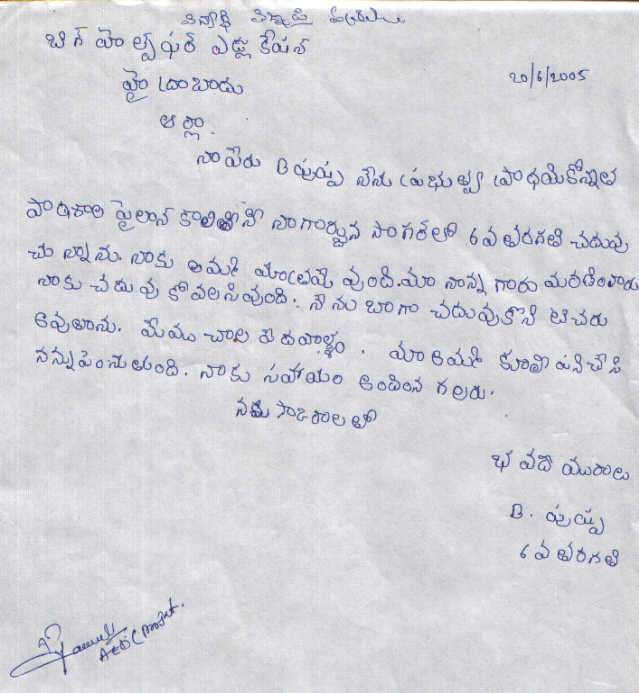 బిగ్ హెల్ప్ ఫర్ ఎడ్యుకేషన్
హైద్రాబాదు
20/6/2005
ఆర్యా.
నా పేరు B పుష్ప నేను ప్రభుత్వ ప్రాధమికోన్నత
పాఠశాల పైలాన్ కాలనీ నాగార్జున సాగర్ లో 6వ తరగతి చదువు
చున్నాను. నాకు అమ్మ మాత్రమే వుంది. మా నాన్న గారు మరణించారు
నాకు చదువు కోవలసివుంది. నేను బాగా చదువుకొని టీచరు
అవుతాను. మేము చాల పేదవాళ్ళం. మా అమ్మ కూలి పని చేసి
నన్ను పెంచుతుంది. నాకు సహాయం అందించ గలరు.
భవదీయురాలు
B. పుష్ప
6వ తరగతి